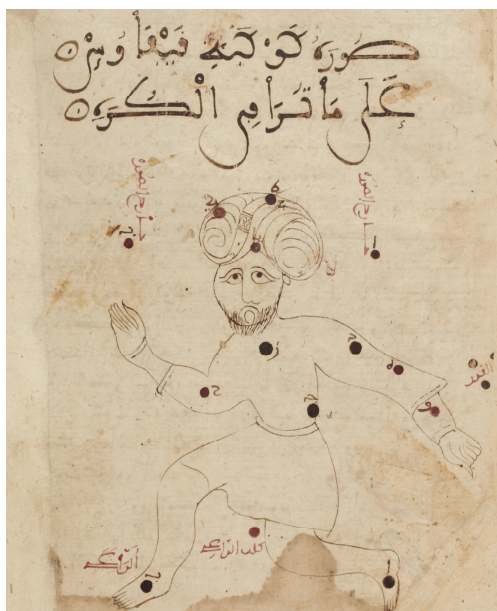 صورة كوكبة قيقاوس
على ما ترا في الكرة
خارج الصورة
خارج الصورة
القدر
كلب الراعي
الراعي